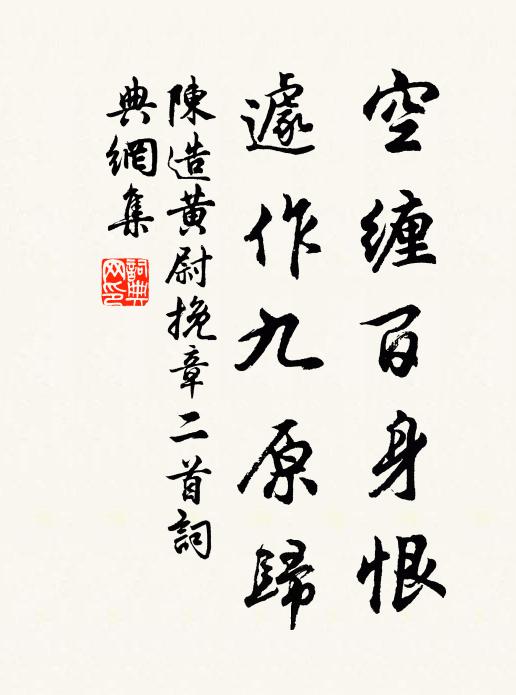 空缠百身恨
遽作九原歸
陳造黄尉挽章二首詞
典網集
詞典
网印